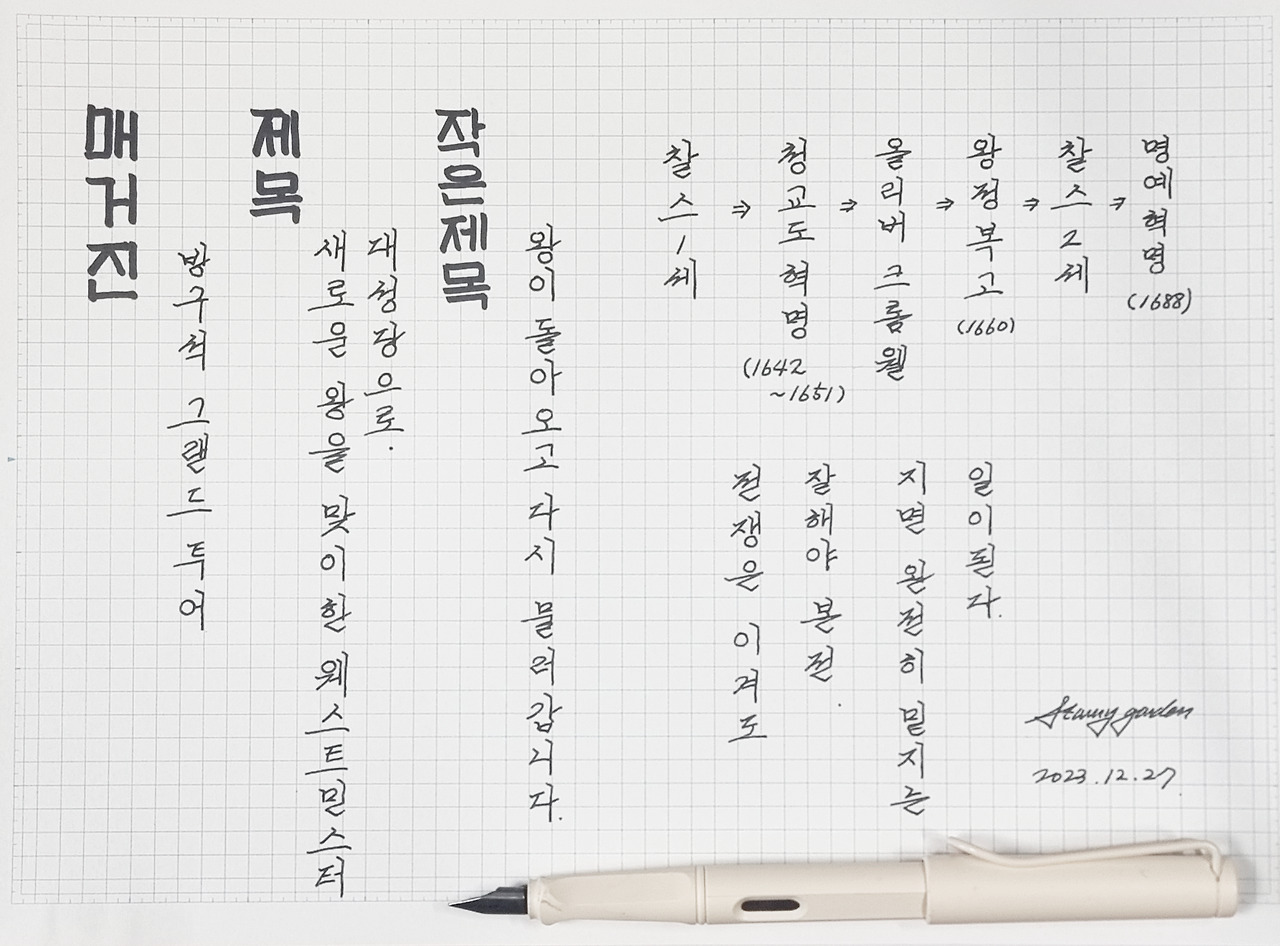 매거진
방구석 그랜드 투어
제목
새로운 왕을 맞이한 웨스트민스터
대성당으로.
작은제목
왕이 돌아오고 다시 물러갑니다.
찰스1세
⇒
청교도 혁명
(1642
~1651)
⇒
올리버 크롬웰
⇒
왕정복고
(1660)
⇒
찰스2세
⇒
명예혁명
(1688)
전쟁은 이겨도
잘해야 본전.
지면 완전히 밑지는
일이된다.
Starry garden
2023.12.27.